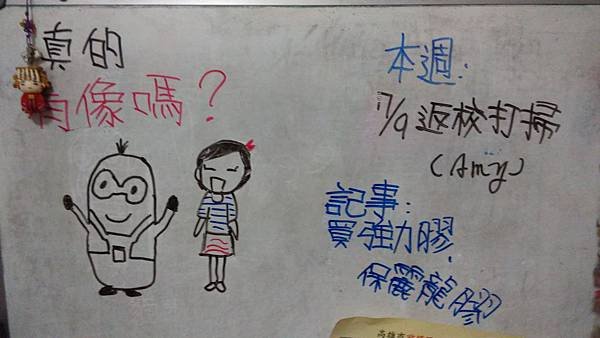 真的
有像嗎？
本週：
7/9 返校打掃
(Amy)
記事：
買強力膠、
保麗龍膠
高雄市